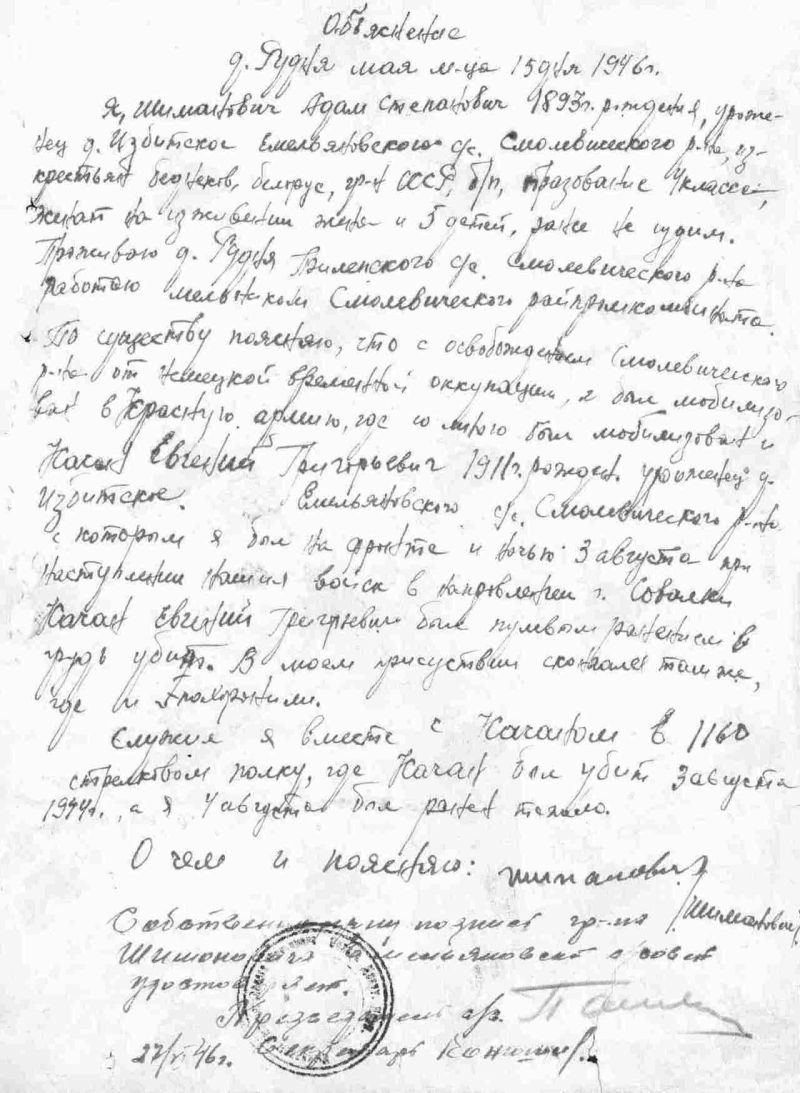 Объяснение
д. Рудня мая м-ца 15 дня 1946 г.
Я, Шиманович Адам Степанович 1893 г. рождения, уроже-
нец д. Избитское Емельяновского с/с. Смолевичского р-на, из-
крестьян бедняков, белорус, гр-н СССР, б/п, образование 4 класса,
женат на иждивении жена и 5 детей, ранее не судим.
Проживаю д. Рудня с/с. Смолевичского р-на
работаю мельником Смолевичского райпромкомбината.
По существу поясняю, что с освобождением Смолевичского
р-на от немецкой временной оккупации, я был мобилизо-
ван в Красную армию, где со мною был мобилизован и
Качан Евгений Григорьевич 1911 г. рожден. уроженец д.
Избитское. Емельяновского с/с. Смолевичского р-на
с которым я был на фронте и ночью 3 августа при
наступлении наших войск в направлении г. Совалки
Качан Евгений Григорьевич был пулевым ранением в
грудь убит. В моем присуствии скончался там же,
где и похоронили.
Служил я вместе с Качаном в 1160
стрелковом полку, где Качан был убит 3 августа
1944 г., а я 4 августа был ранен тяжело.
О чем и поясняю: Шиманович
/Шиманович/
Собственноручную подпись гр-на
Шимановича Емельяновский с/совет
удостоверяет.
Председатель с/с.
27/VI 46 г. Секретарь